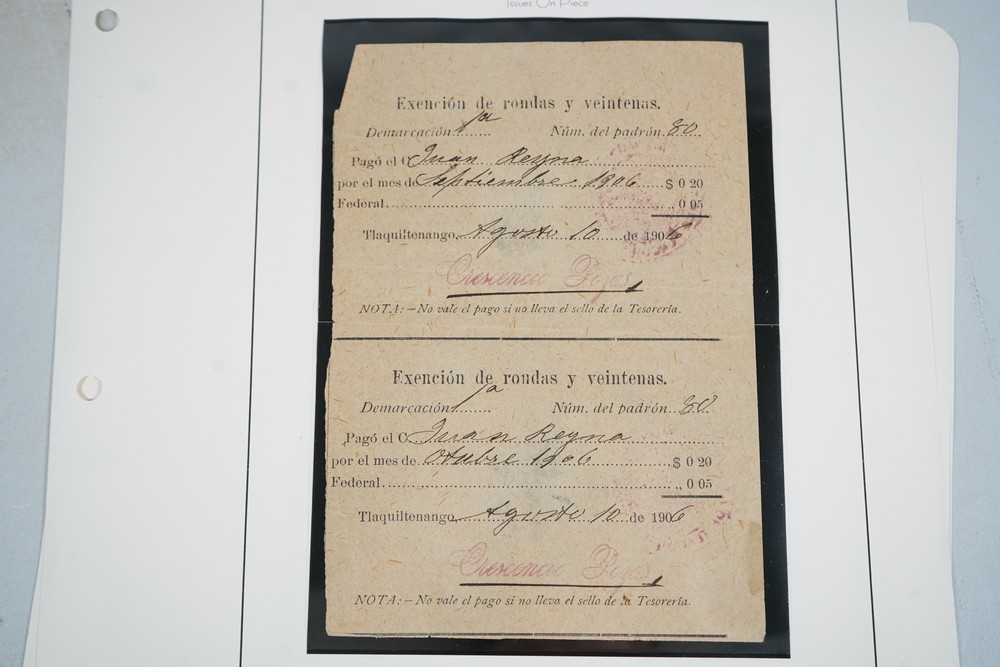 Issues On Piece
Exención de rondas y veintenas.
Demarcación 1a Núm. del padrón 80
Pagó el C. Juan Reyna
por el mes de Septiembre 1906 $ 0 20
Federal ,, 0 05
Tlaquiltenango, Agosto 10 de 1906
Crescencio
NOTA:—No vale el pago si no lleva el sello de la Tesorería.
Exención de rondas y veintenas.
Demarcación 1a Núm. del padrón 80
Pagó el C. Juan Reyna
por el mes de Otubre 1906 $ 0 20
Federal ,, 0 05
Tlaquiltenango, Agosto 10 de 1906
Crescencio
NOTA:—No vale el pago si no lleva el sello de la Tesorería.